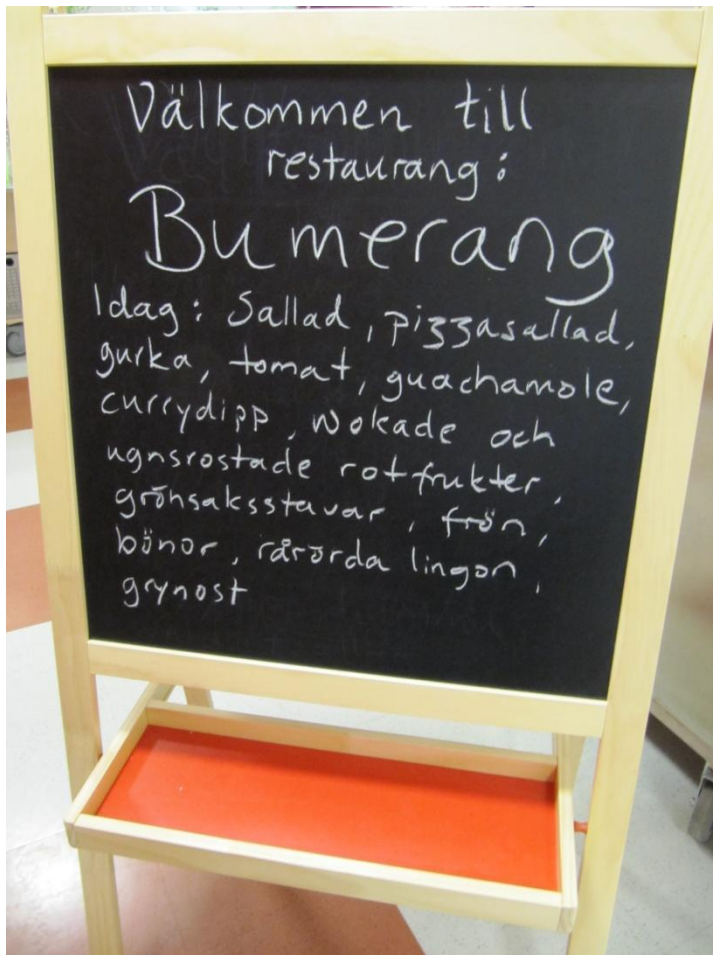 Välkommen till
restaurang:
Bumerang
Idag: Sallad, pizzasallad,
gurka, tomat, guachamole,
currydipp, wokade och
ugnsrostade rotfrukter,
grönsaksstavar, frön,
bönor, rårörda lingon,
grynost